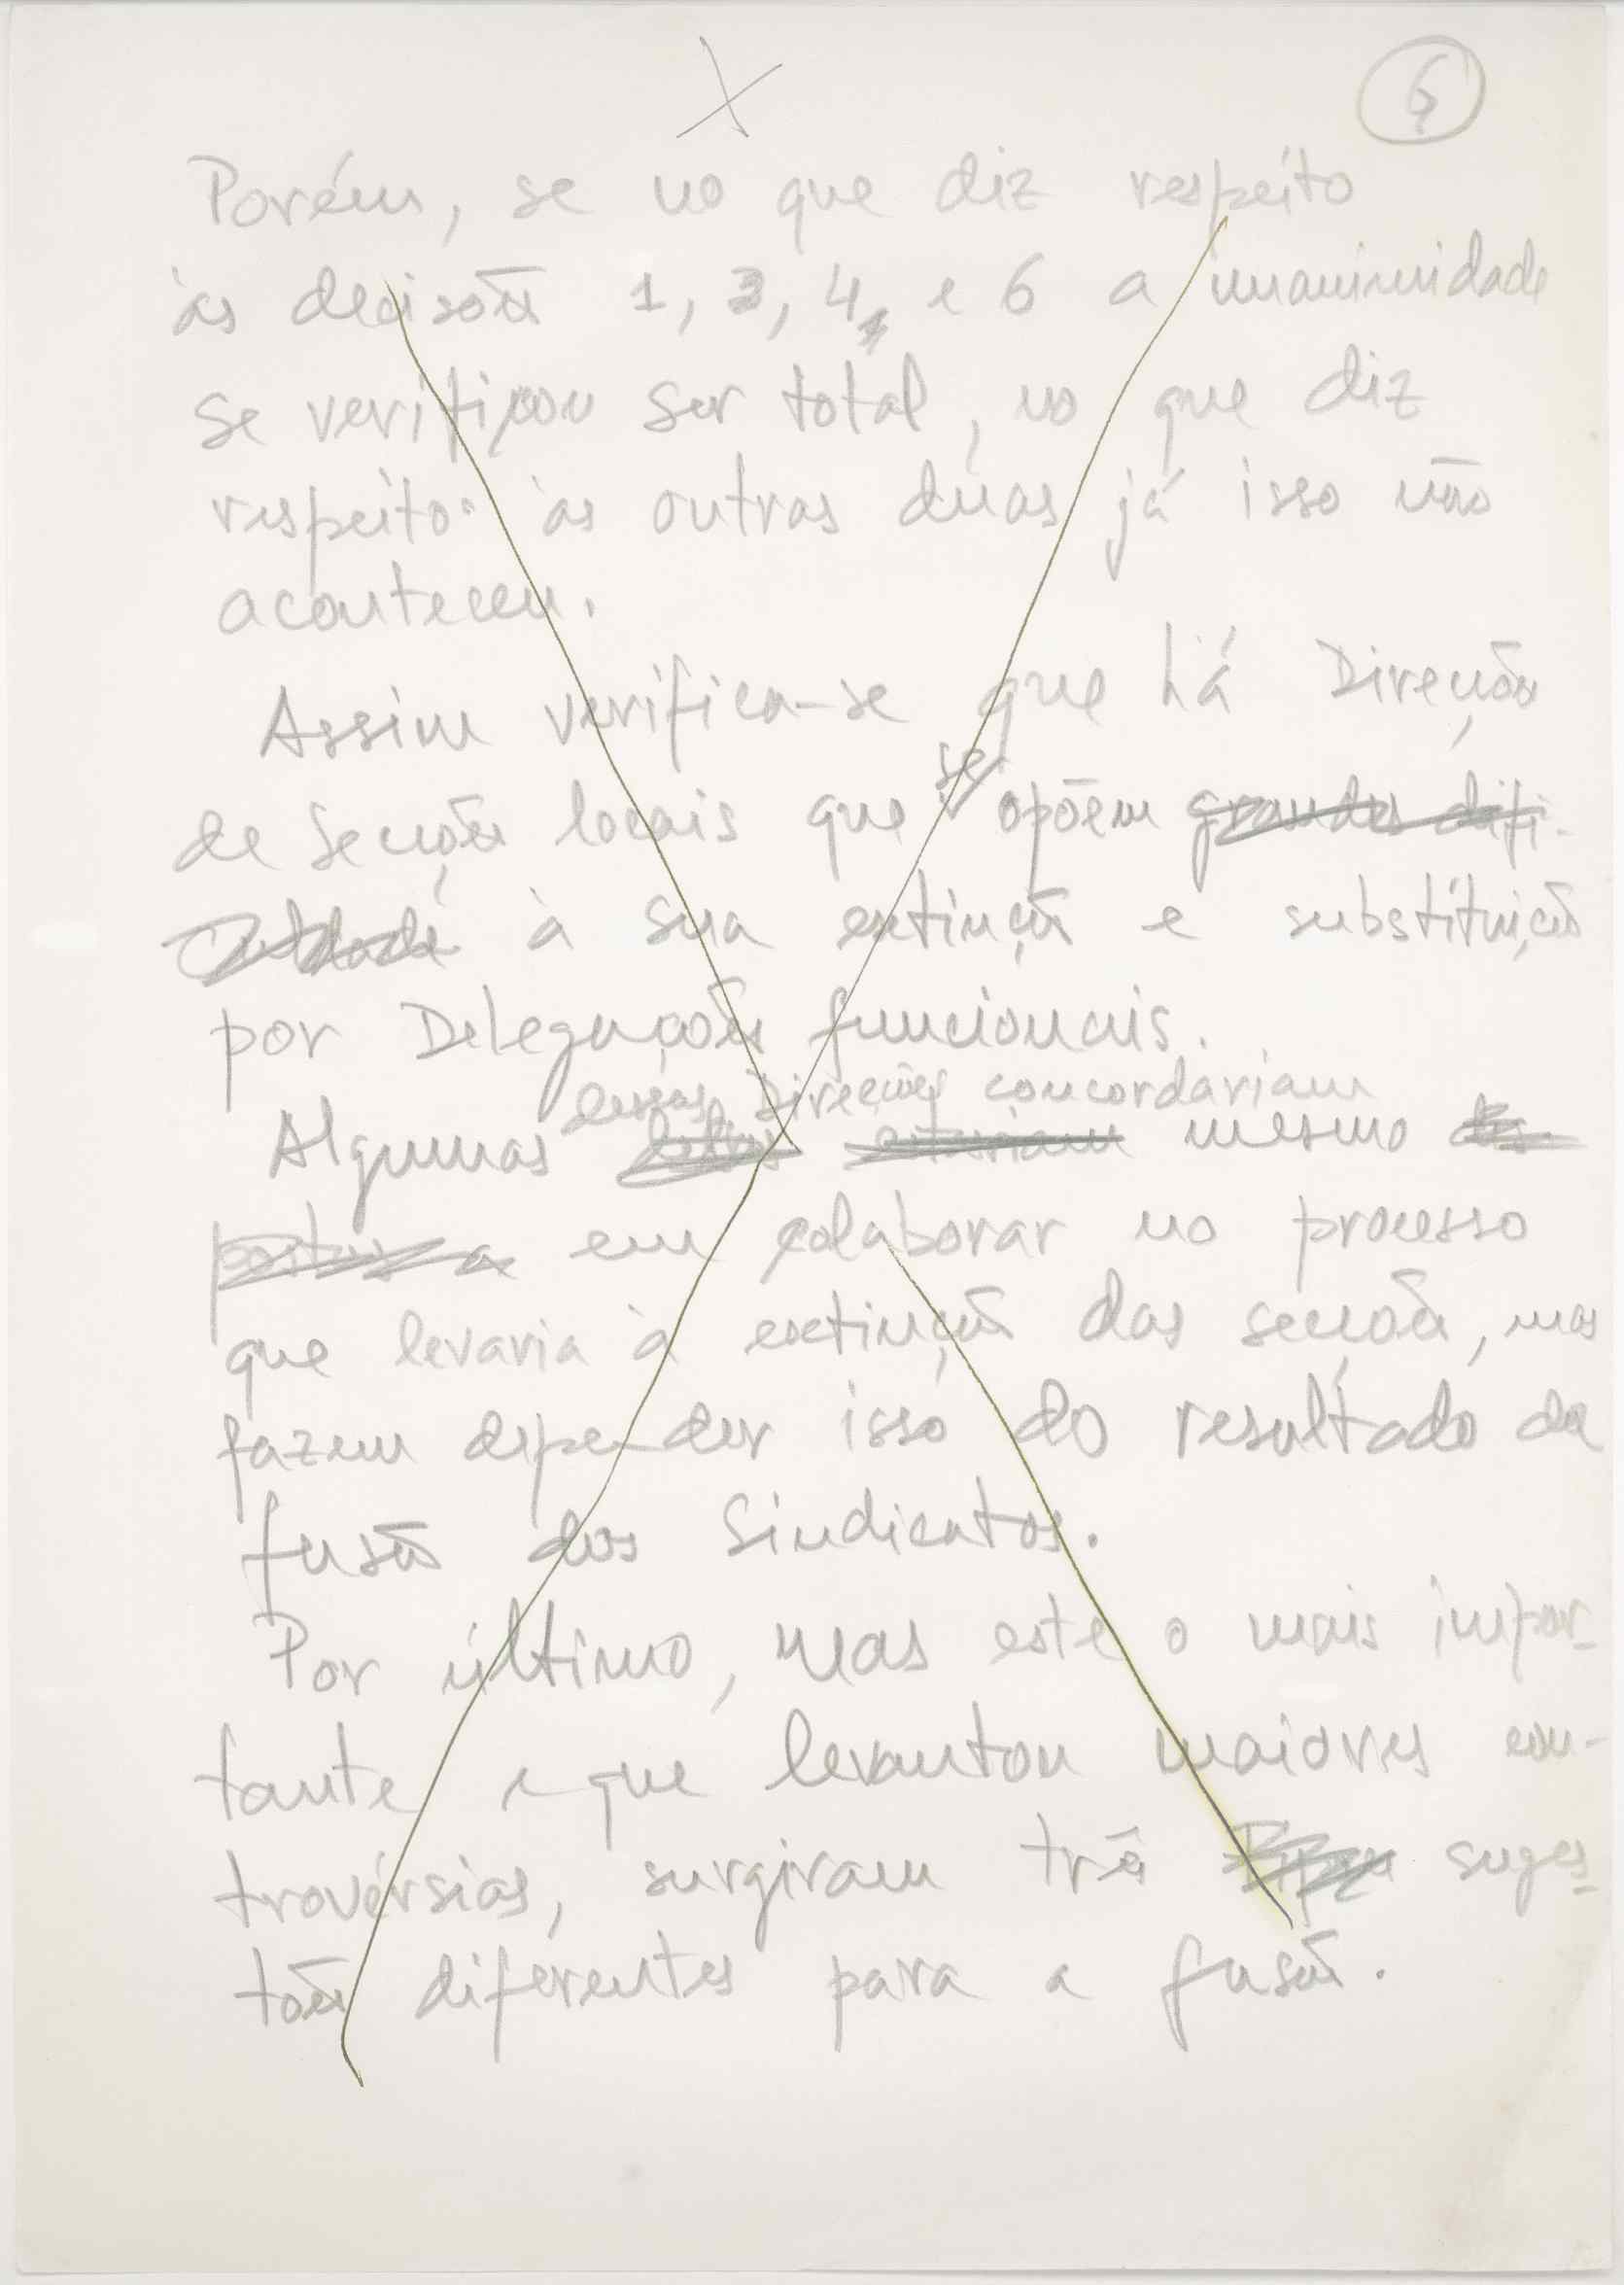 6
Porém, se no que diz respeito
às decisões 1, 3, 4, e 6 a unanimidade
se verificou ser total, no que diz
respeito às outras duas já isso não
aconteceu.
Assim verifica-se que há Direcções
de Secções locais que se opõem grandes difi-
culdades à sua extinção e substituição
por Delegações funcionais.
dessas Direcções concordariam
Algumas delas estariam mesmo
em colaborar no processo
que levaria à extinção das secções, mas
fazem depender isso do resultado da
fusão dos Sindicatos.
Por último, mas este o mais impor-
tante e que levantou maiores con-
trovérsias, surgiram três suges-
tões diferentes para a fusão.